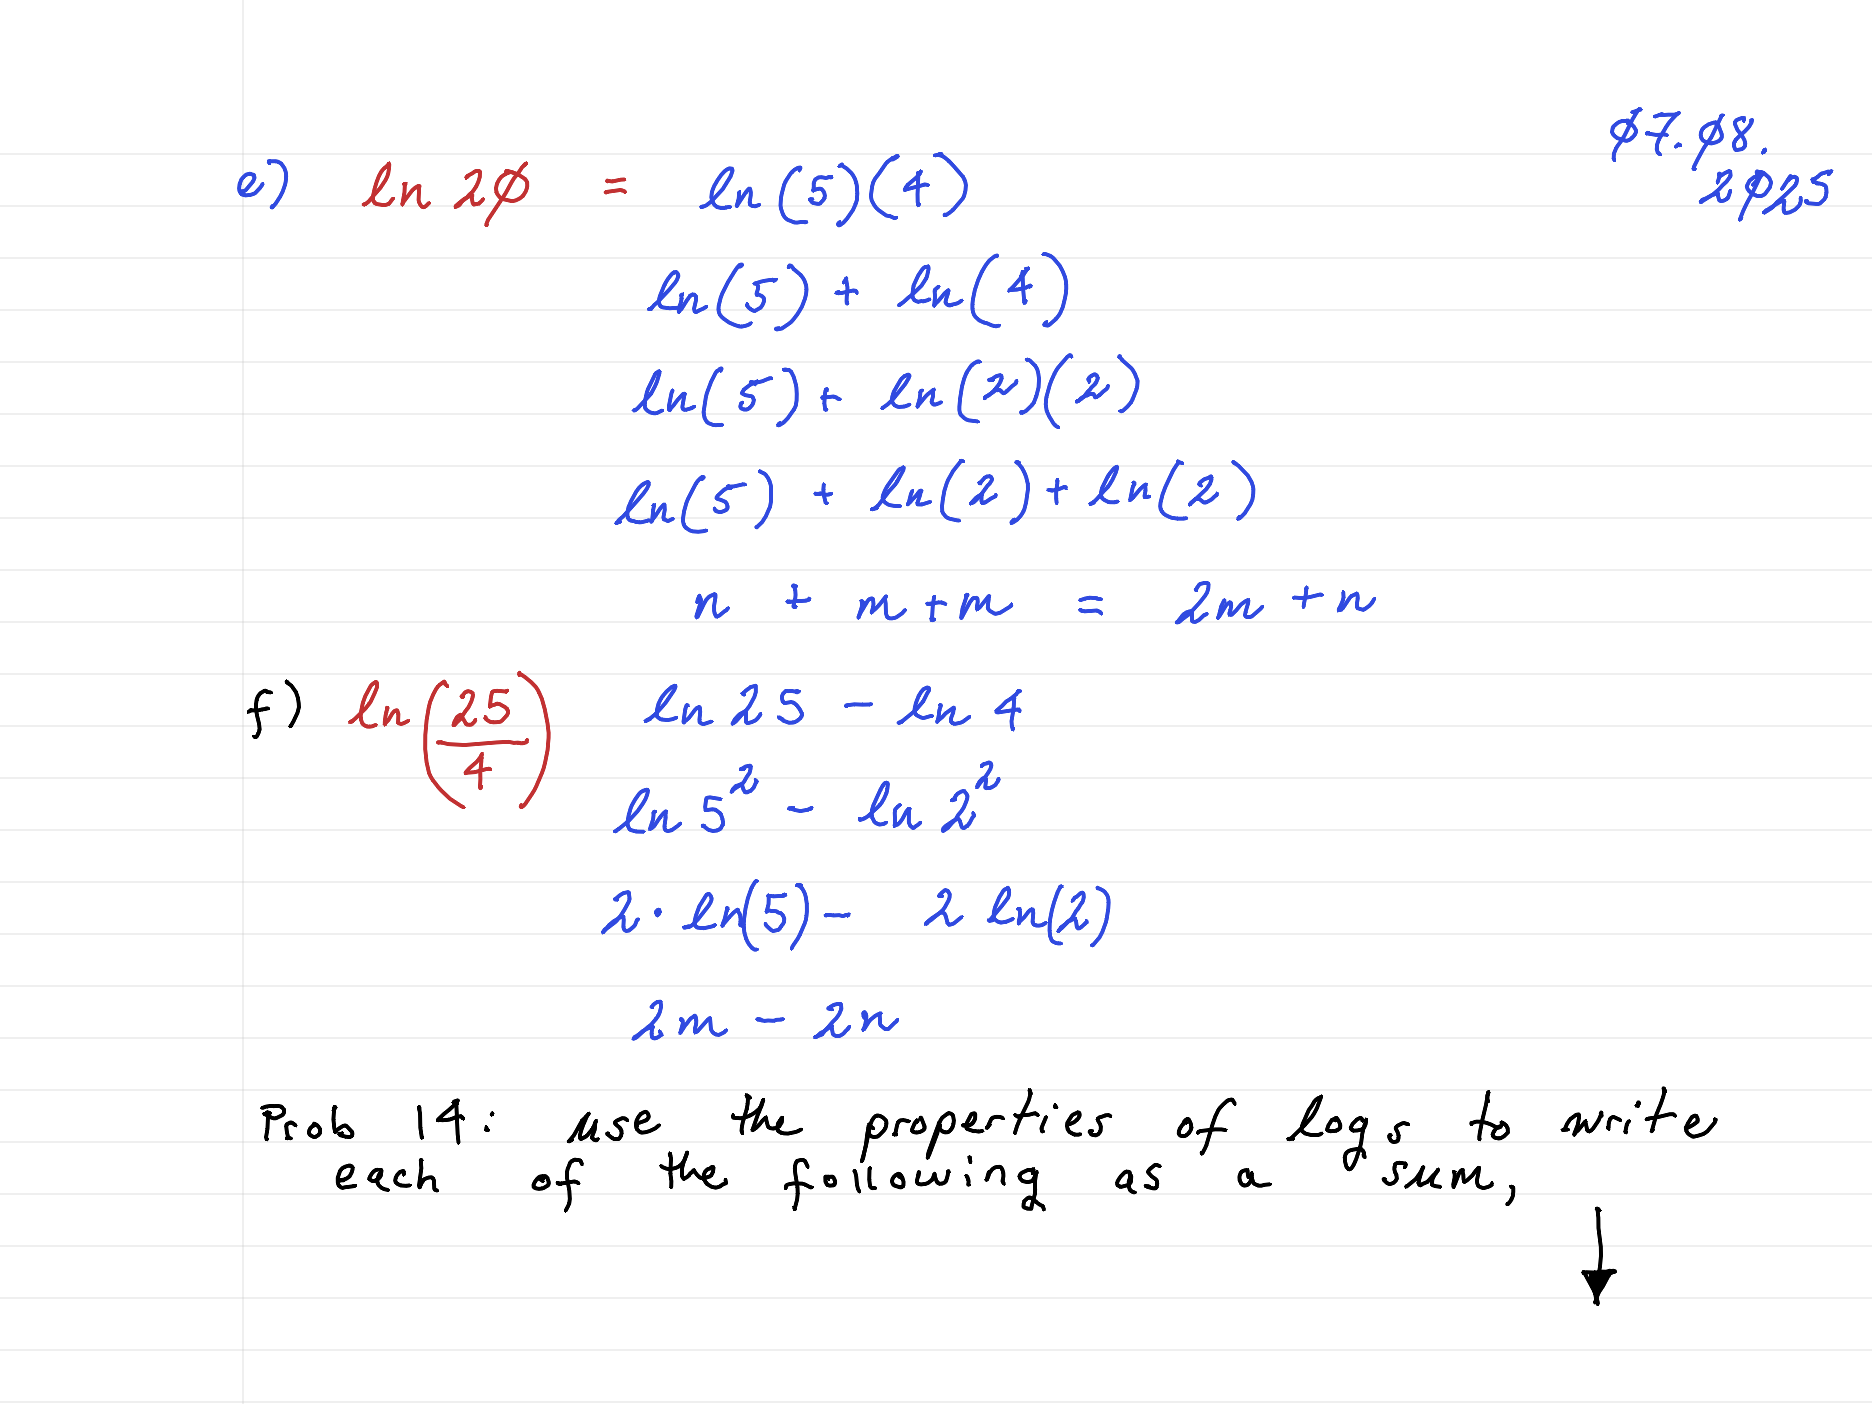 ø7.ø8.
2ø25
e) ln 2ø = ln (5)(4)
ln(5) + ln(4)
ln(5) + ln(2)(2)
ln(5) + ln(2) + ln(2)
n + m + m = 2m + n
f) ln(25/4) ln 25 - ln 4
ln 5² - ln 2²
2 · ln(5) - 2 ln(2)
2m - 2n
Prob 14: use the properties of logs to write
each of the following as a sum,